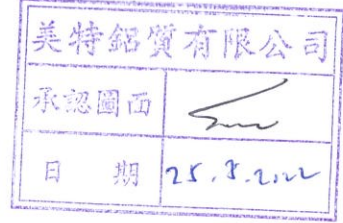 美特鋁質有限公司
承認圖面
日 期 25.3.2022